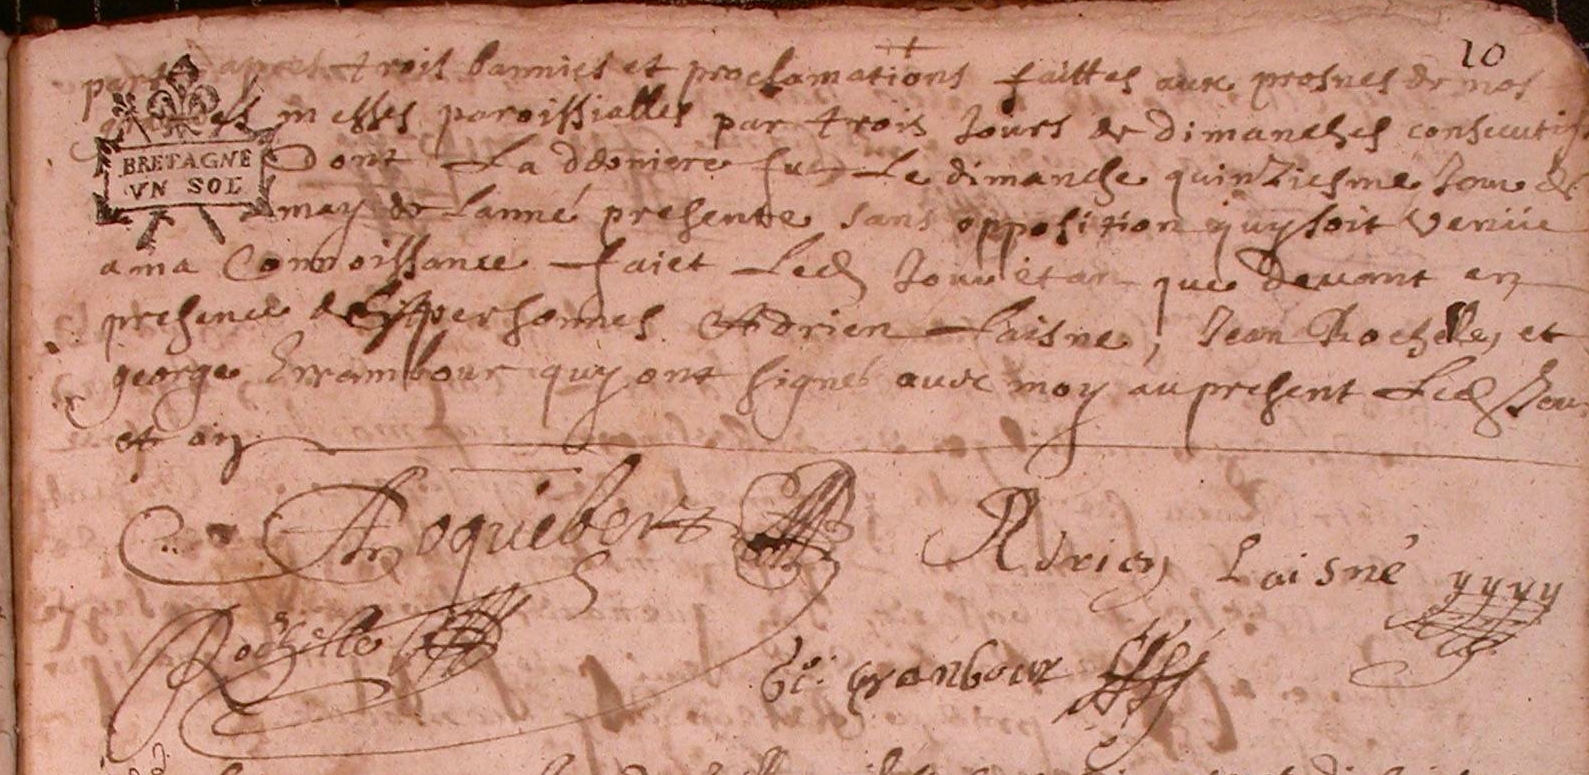 10
apres trois bannies et proclamations faittes aux prosnes de nos
messes paroissialles par trois Jours de dimanches consecutifs
BRETAGNE
VN SOL
Dont La derniere fut Le dimanche quinziesme Jour de
may de Lanné presente sans opposition quy soit venüe
a ma Connoissance faict Led Jour et an que devant en
presence de personnes Adrien Laisne, Jean Rochelle, et
george Errambour quy ont signés avec moy au present Led Jour
et an
Roquebert Adrien Laisné
Rochelle